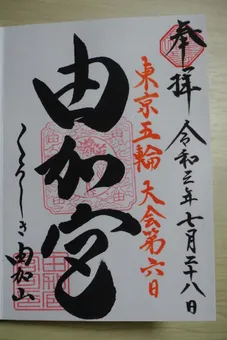 奉拝
令和三年七月二十八日
東京五輪 大会第六日
由加宮
くらしき 由加山